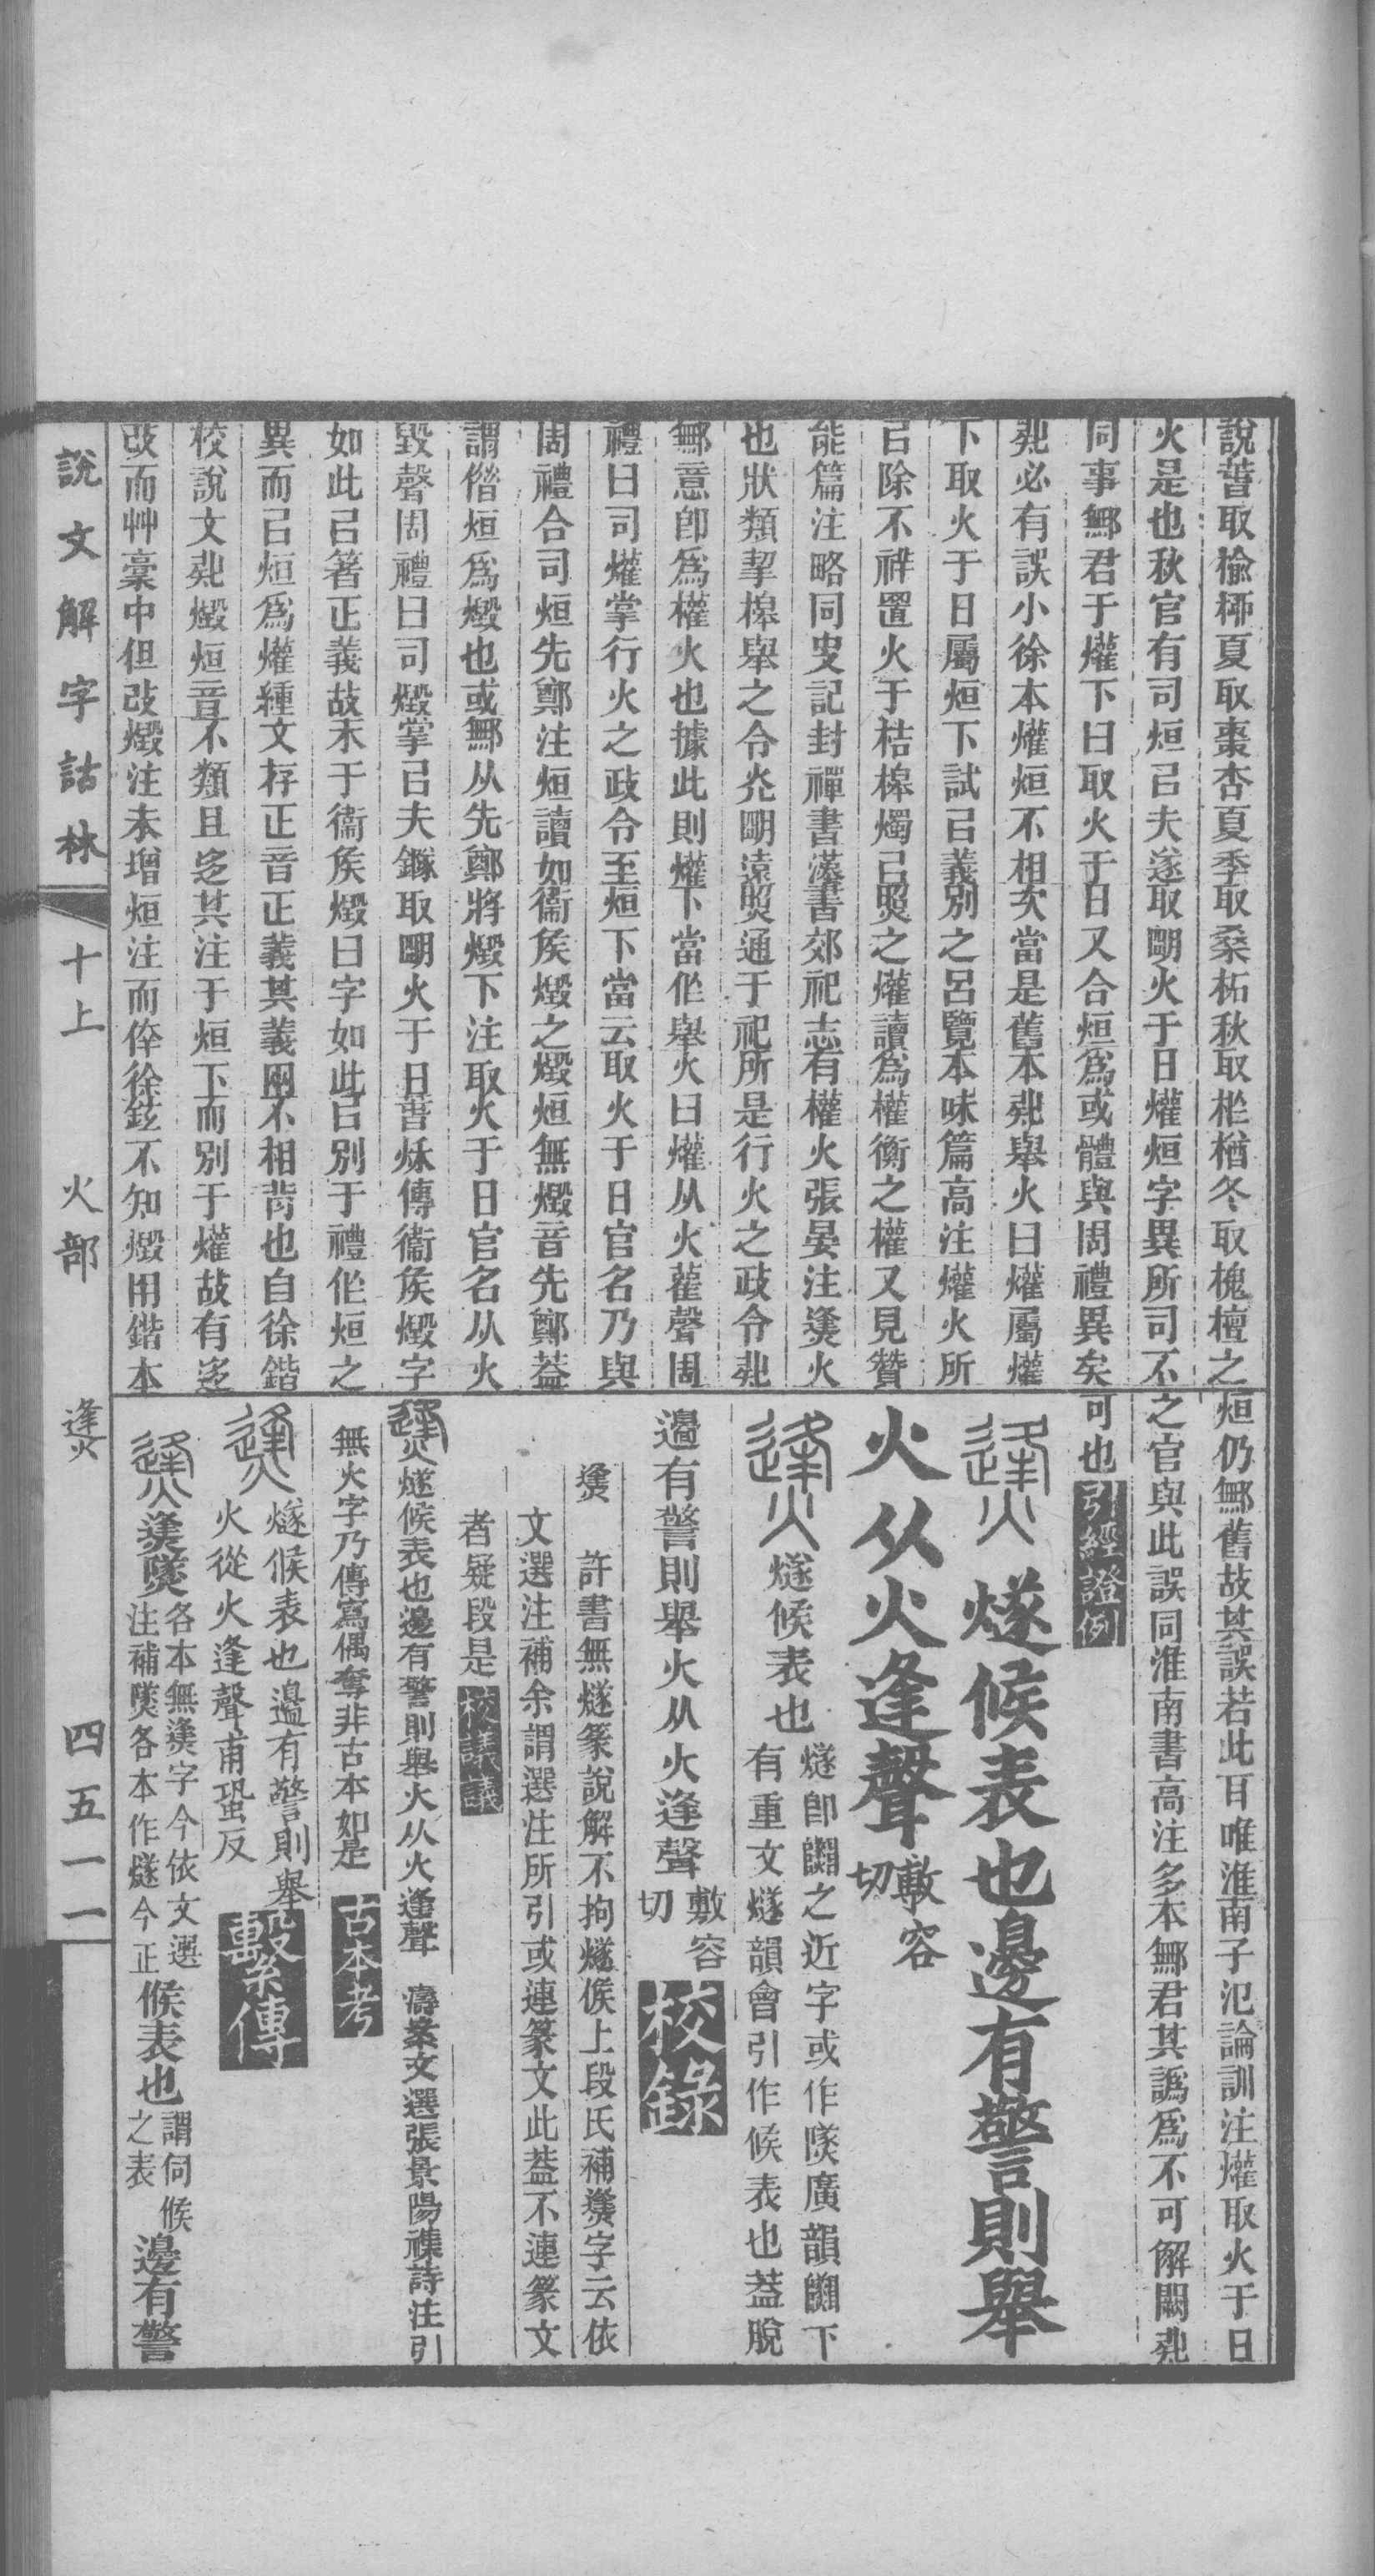 說萅取榆桺夏取棗杏夏季取桑柘秋取柞楢冬取槐檀之
火是也秋官有司烜㠯夫遂取朙火于日爟烜字異所司不
同事鄦君于爟下曰取火于日又合烜爲或體與周禮異矣
𠁁必有誤小徐本爟烜不相次當是舊本𠁁舉火曰爟屬爟
下取火于日屬烜下試㠯義別之呂覽本味篇高注爟火所
㠯除不祥置火于桔槔燭㠯照之爟讀爲權衡之權又見贊
能篇注略同史記封禪書漢書郊祀志有權火張晏注㷭火
也狀類挈槔舉之令光朙遠照通于祀所是行火之政令𠁁
鄦意卽爲權火也據此則爟下當作舉火曰爟从火雚聲周
禮曰司爟掌行火之政令至烜下當云取火于日官名乃與
周禮合司烜先鄭注烜讀如衞矦燬之燬烜無燬音先鄭葢
謂借烜爲燬也或鄦从先鄭將燬下注取火于日官名从火
毀聲周禮曰司燬掌㠯夫鐩取朙火于日萅秌傳衞矦燬字
如此㠯箸正義故末于衞矦燬曰字如此㠯別于禮作烜之
異而㠯烜爲爟種文存正音正義其義㒳不相背也自徐鍇
校說文𠁁燬烜音不類且迻其注于烜下而別于爟故有迻
改而艸稾中但改燬注未增烜注而倅徐鉉不知燬用鍇本
烜仍鄦舊故其誤若此百唯淮南子氾論訓注爟取火于日
之官與此誤同淮南書高注多本鄦君其譌爲不可解闕𠁁
可也引經證例
㷭燧候表也邊有警則舉
火从火逢聲敷容切
㷭燧候表也燧卽䥙之近字或作㸂廣韻䥙下
有重文燧韻會引作候表也葢脫
邉有警則舉火从火逢聲敷容切校錄
㷭 許書無燧篆說解不拘燧矦上段氏補㷭字云依
文選注補余謂選注所引或連篆文此葢不連篆文
者疑段是校議議
㷭燧候表也邊有警則舉火从火逢聲 濤案文選張景陽襍詩注引
無火字乃傳寫偶奪非古本如是古本考
㷭燧候表也邉有警則舉
火從火逢聲甫蛩反繫傳
㷭㷭㸂各本無㷭字今依文選注補㸂各本作燧今正候表也謂伺候之表邊有警
說文解字詁林 十上 火部 㷭 四五一一